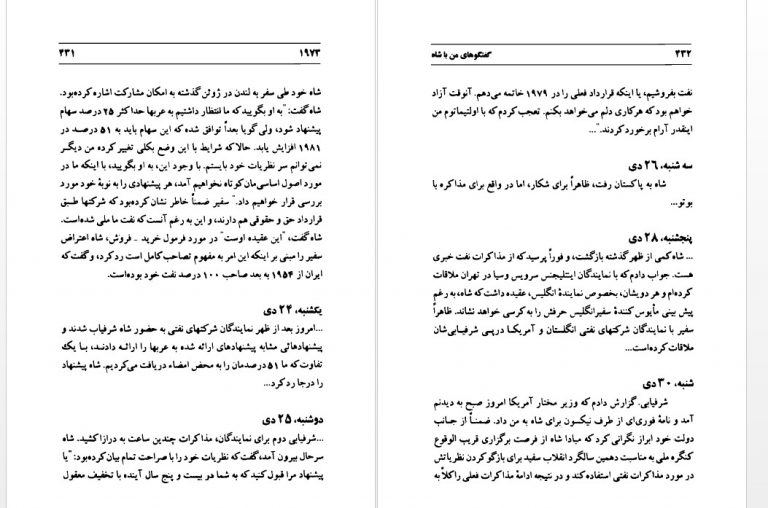 ۱۹۷۳ ۴۳۱
شاه خود طی سفر به لندن در ژوئن گذشته به امکان مشارکت اشاره کرده‌بود.
شاه گفت: "به او بگویید که ما انتظار داشتیم به عربها حداکثر ۲۵ درصد سهام
پیشنهاد شود، ولی گویا بعداً توافق شده که این سهام باید به ۵۱ درصد در
۱۹۸۱ افزایش یابد. حالا که شرایط با این وضع بکلی تغییر کرده من دیگر
نمی‌توانم سر نظریات خود بایستم. با وجود این، به او بگویید، با اینکه ما در
مورد اصول اساسی‌مان کوتاه نخواهیم آمد، هر پیشنهادی را به نوبهٔ خود مورد
بررسی قرار خواهیم داد." سفیر ضمناً خاطر نشان کرده‌بود که شرکتها طبق
قرارداد حق و حقوقی هم دارند، و این به رغم آنست که نفت ما ملی شده‌است.
شاه گفت، "این عقیده اوست" در مورد فرمول خرید - فروش، شاه اعتراض
سفیر را مبنی بر اینکه این امر به مفهوم تصاحب کامل است رد کرد، و گفت که
ایران از ۱۹۵۴ به بعد صاحب ۱۰۰ درصد نفت خود بوده‌است.
یکشنبه، ۲۴ دی
...امروز بعد از ظهر نمایندگان شرکتهای نفتی به حضور شاه شرفیاب شدند و
پیشنهادهائی مشابه پیشنهادهای ارائه شده به عربها را ارائه دادند، با یک
تفاوت که ما ۵۱ درصدمان را به محض امضاء دریافت می‌کردیم. شاه پیشنهاد
را درجا رد کرد...
دوشنبه، ۲۵ دی
...شرفیابی دوم برای نمایندگان، مذاکرات چندین ساعت به درازا کشید. شاه
سرحال بیرون آمد، گفت که نظریات خود را با صراحت تمام بیان کرده‌بود: "یا
پیشنهاد مرا قبول کنید که به شما دو بیست و پنج سال آینده با تخفیف معقول
گفتگوهای من با شاه ۴۳۲
نفت بفروشیم، یا اینکه قرارداد فعلی را در ۱۹۷۹ خاتمه می‌دهم. آنوقت آزاد
خواهم بود که هرکاری دلم می‌خواهد بکنم. تعجب کردم که با اولتیماتوم من
اینقدر آرام برخورد کردند."...
سه شنبه، ۲۶ دی
شاه به پاکستان رفت، ظاهراً برای شکار، اما در واقع برای مذاکره با
بوتو...
پنجشنبه، ۲۸ دی
... شاه کمی از ظهر گذشته بازگشت، و فوراً پرسید که از مذاکرات نفت خبری
هست. جواب دادم که با نمایندگان اینتلیجنس سرویس وسیا در تهران ملاقات
کرده‌ام و هر دویشان، بخصوص نمایندهٔ انگلیس، عقیده داشت که شاه، به رغم
پیش بینی مأیوس کنندهٔ سفیر انگلیس حرفش را به کرسی خواهد نشاند. ظاهراً
سفیر با نمایندگان شرکتهای نفتی انگلستان و آمریکا درپی شرفیابی‌شان
ملاقات کرده‌است...
شنبه، ۳۰ دی
شرفیابی. گزارش دادم که وزیر مختار آمریکا امروز صبح به دیدنم
آمد و نامهٔ فوری‌ای از طرف نیکسون برای شاه به من داد. ضمناً از جانب
دولت خود ابراز نگرانی کرد که مبادا شاه از فرصت برگزاری قریب الوقوع
کنگره ملی به مناسبت دهمین سالگرد انقلاب سفید برای بازگو کردن نظریاتش
در مورد مذاکرات نفتی استفاده کند و در نتیجه ادامهٔ مذاکرات فعلی را کلاً به